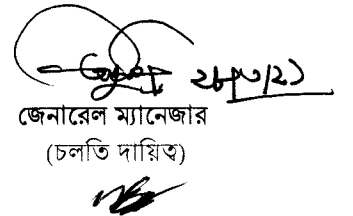 ২৮/৩/২১
জেনারেল ম্যানেজার
(চলতি দায়িত্ব)